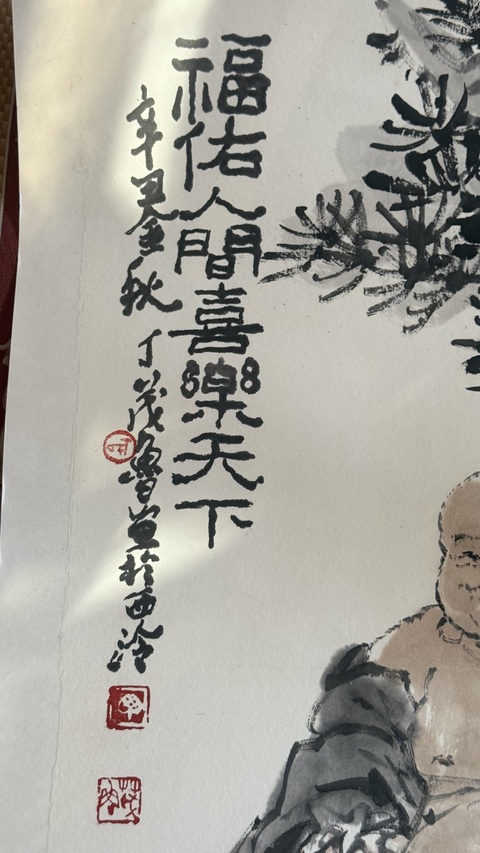 福佑人間喜樂天下
辛丑金秋丁茂魯畫於西泠